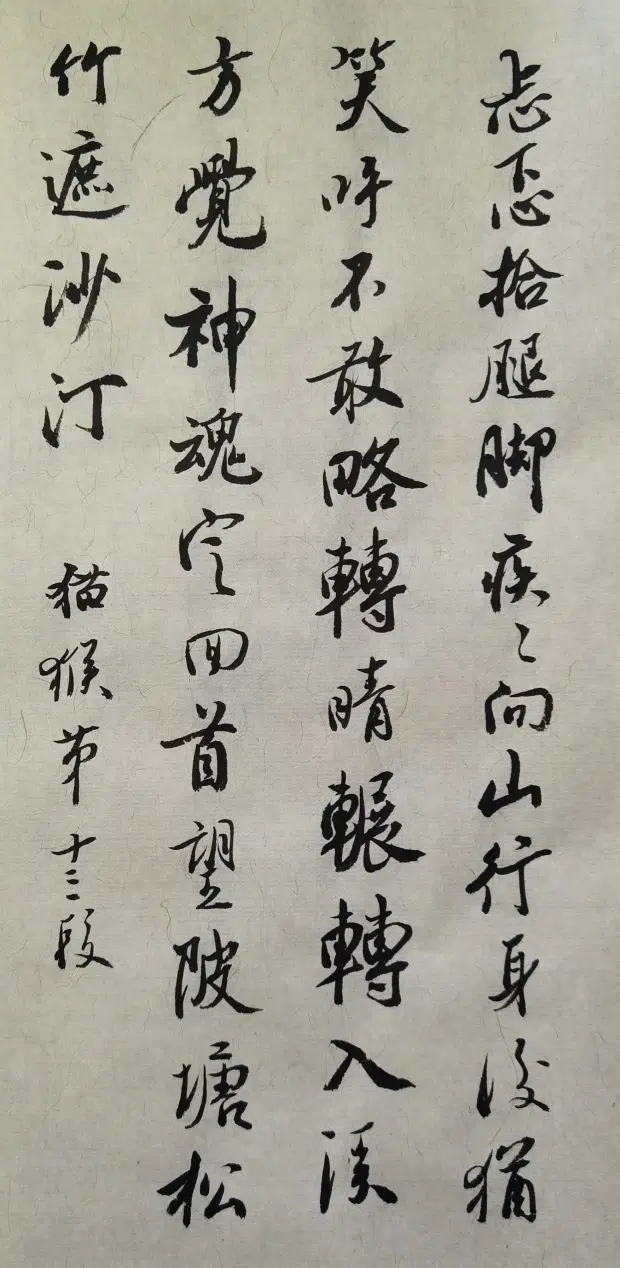 忐忑拾腿脚疾々向山行身後猶
笑呼不敢略轉睛輾轉入溪
方覺神魂定回首望陂塘松
竹遮沙汀
猫猴第十三段